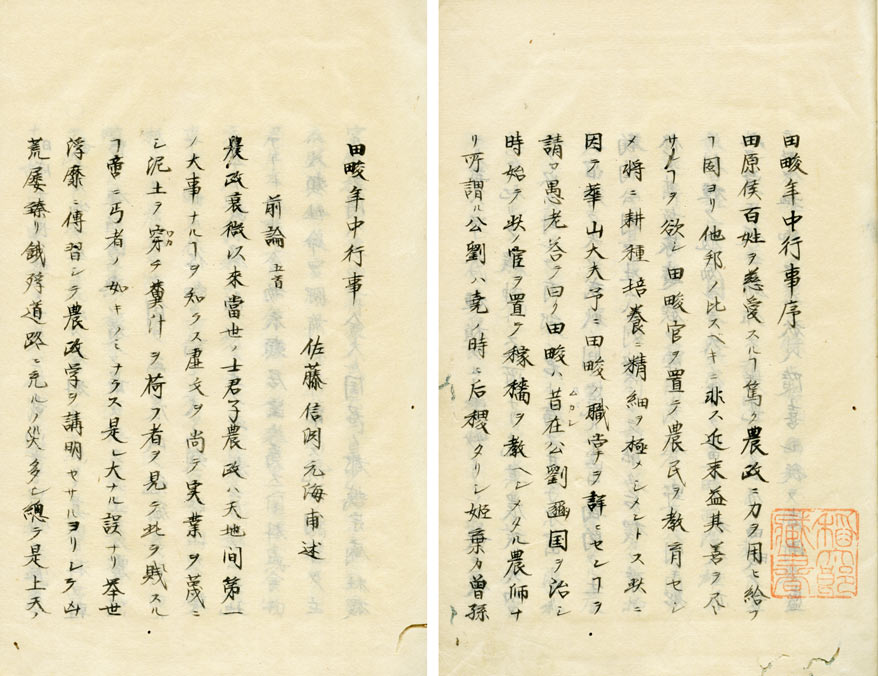 田畯年中行事序
田原侯百姓ヲ慈愛スルヿ篤ク農政ニ力ヲ用ヒ給フ
ヿ固ヨリ他邦ノ比スヘキニ非ス近来益其善ヲ尽
サンヿヲ欲シ田畯官ヲ置テ農民ヲ教育セシ
メ将ニ耕種培養ニ精細ヲ極メシメントス此ニ
因テ華山大夫予ニ田畯ノ職掌ヲ詳ニセンヿヲ
請フ愚老答テ曰ク田畯ハ昔在公劉豳国ヲ治シ
ムカシ
時始テ此ノ官ヲ置キ稼穡ヲ教ヘシメタル農師ナ
リ所謂ル公劉ハ堯ノ時ニ后稷タリシ姫棄カ曽孫
田畯年中行事
佐藤信淵元海甫述
前論 五首
農政衰微以來當世ノ士君子農政ハ天地間第一
ノ大事ナルヿヲ知ラス虚文ヲ尚テ実業ヲ蔑ニ
シ泥土ヲ穿チ糞汁ヲ荷フ者ヲ見テ此ヲ賤スル
ウカ
ヿ啻ニ丐者ノ如キノミナラス是レ大ナル誤ナリ挙世
浮靡ニ傳習シテ農政学ヲ講明セサルヨリシテ凶
荒屡臻リ餓殍道路ニ充ルノ災多シ總テ是上天ノ